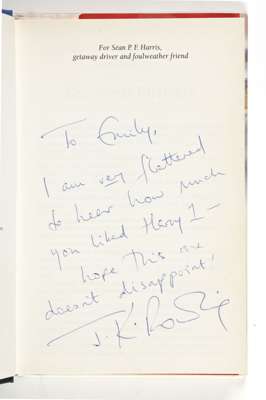 For Seán P. F. Harris,
getaway driver and foulweather friend
To Emily,
I am very flattered
to hear how much
you liked Harry 1 –
hope this one
doesn't disappoint!
J. K. Rowling